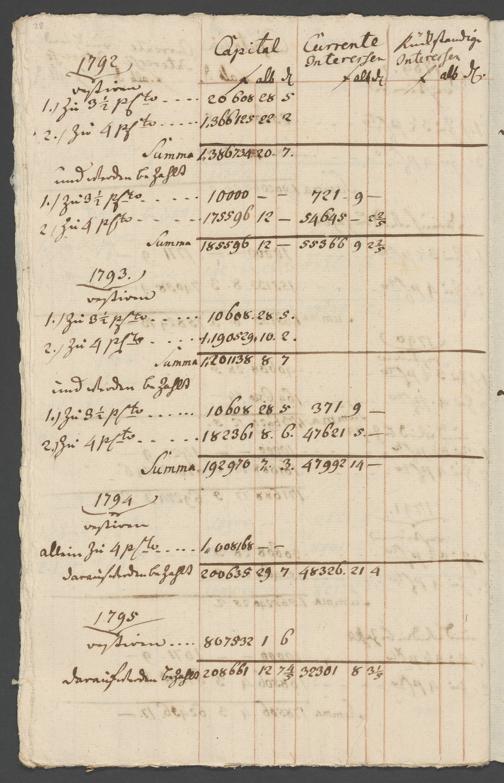 28
Capital Currente Rückständige
1792 Interessen Interessen
f alb d f alb d f alb d
restiren
1.) Zu 3 1/2 pCto 20608 28 5
2.) Zu 4 pCto 1,366125 22 2
Summa 1,386734 20 7.
und werden bezahlt
1.) Zu 3 1/2 pCto 10000 — — 721 9 —
2.) Zu 4 pCto 175596 12 — 54645 — 2 2/5
Summa 185596 12 — 55366 9 2 2/5
1793.
restiren
1.) Zu 3 1/2 pCto 10608 28 5.
2.) Zu 4 pCto 1,190529. 10. 2.
Summa 1,201138 8 7
und werden bezahlt
1.) Zu 3 1/2 pCto 10608 28 5 371 9 —
2.) Zu 4 pCto 182361 8. 6. 47621 5. —
Summa 192970 7. 3. 47992 14 —
1794
restiren
allein Zu 4 pCto 1,008168 — —
darauf werden bezahlt 200635 29 7 48326. 21 4
1795
restiren 807532 1 6
darauf werden bezahlt 208661 12 32301 8